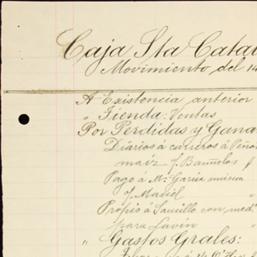 Caja Sta Catal
Movimiento del 14
A Existencia anterior
" Tienda: Ventas
Por Perdidas y Gana
Diarios á carreros á Peño
maíz J. Bañuelos
Pagó á M. García
J. Maciel
Propio á Saucillo con med
para Favin
" Gastos Grales: